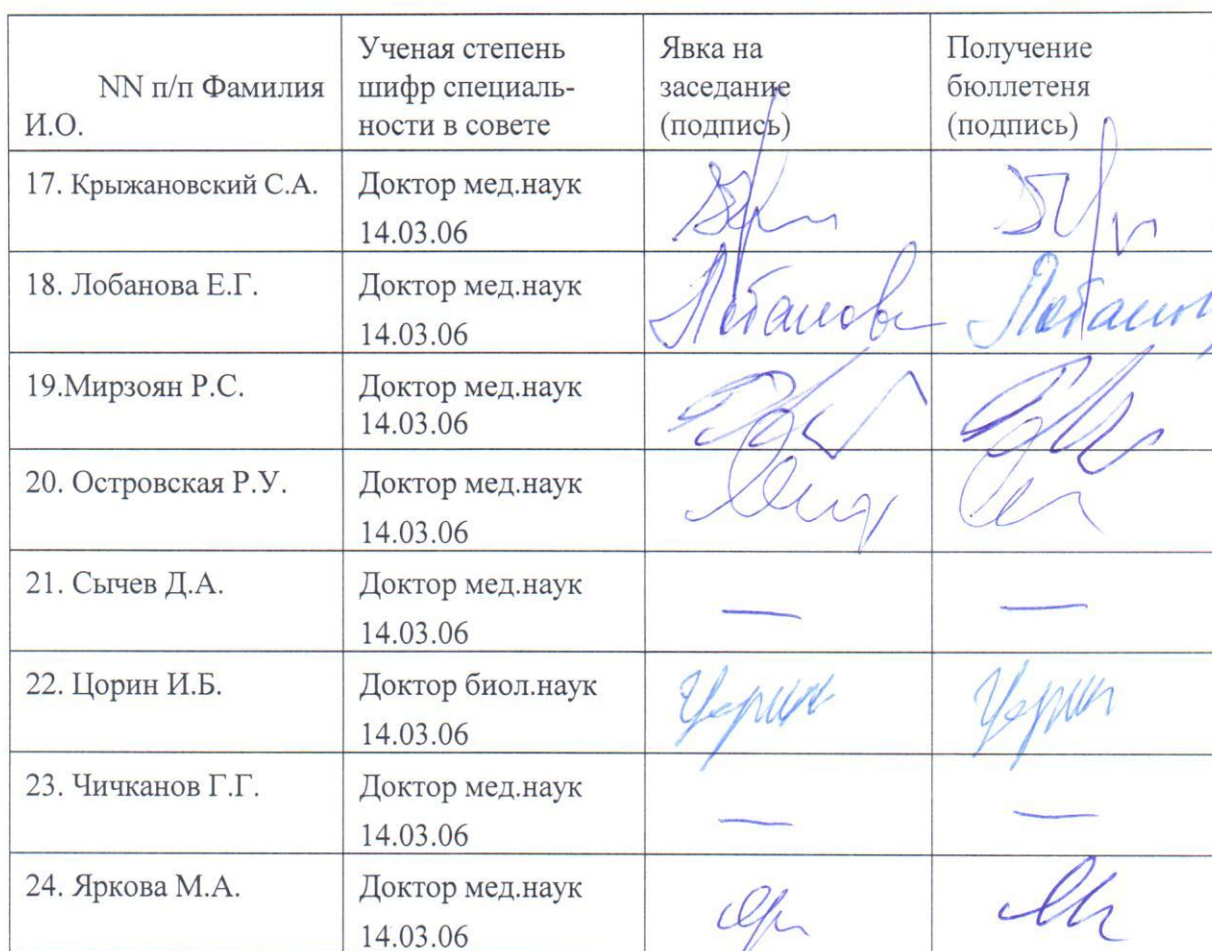 NN п/п Фамилия
И.О.
Ученая степень
шифр специаль-
ности в совете
Явка на
заседание
(подпись)
Получение
бюллетеня
(подпись)
17. Крыжановский С.А.
Доктор мед.наук
14.03.06
18. Лобанова Е.Г.
Доктор мед.наук
14.03.06
19.Мирзоян Р.С.
Доктор мед.наук
14.03.06
20. Островская Р.У.
Доктор мед.наук
14.03.06
21. Сычев Д.А.
Доктор мед.наук
14.03.06
—
—
22. Цорин И.Б.
Доктор биол.наук
14.03.06
23. Чичканов Г.Г.
Доктор мед.наук
14.03.06
—
—
24. Яркова М.А.
Доктор мед.наук
14.03.06